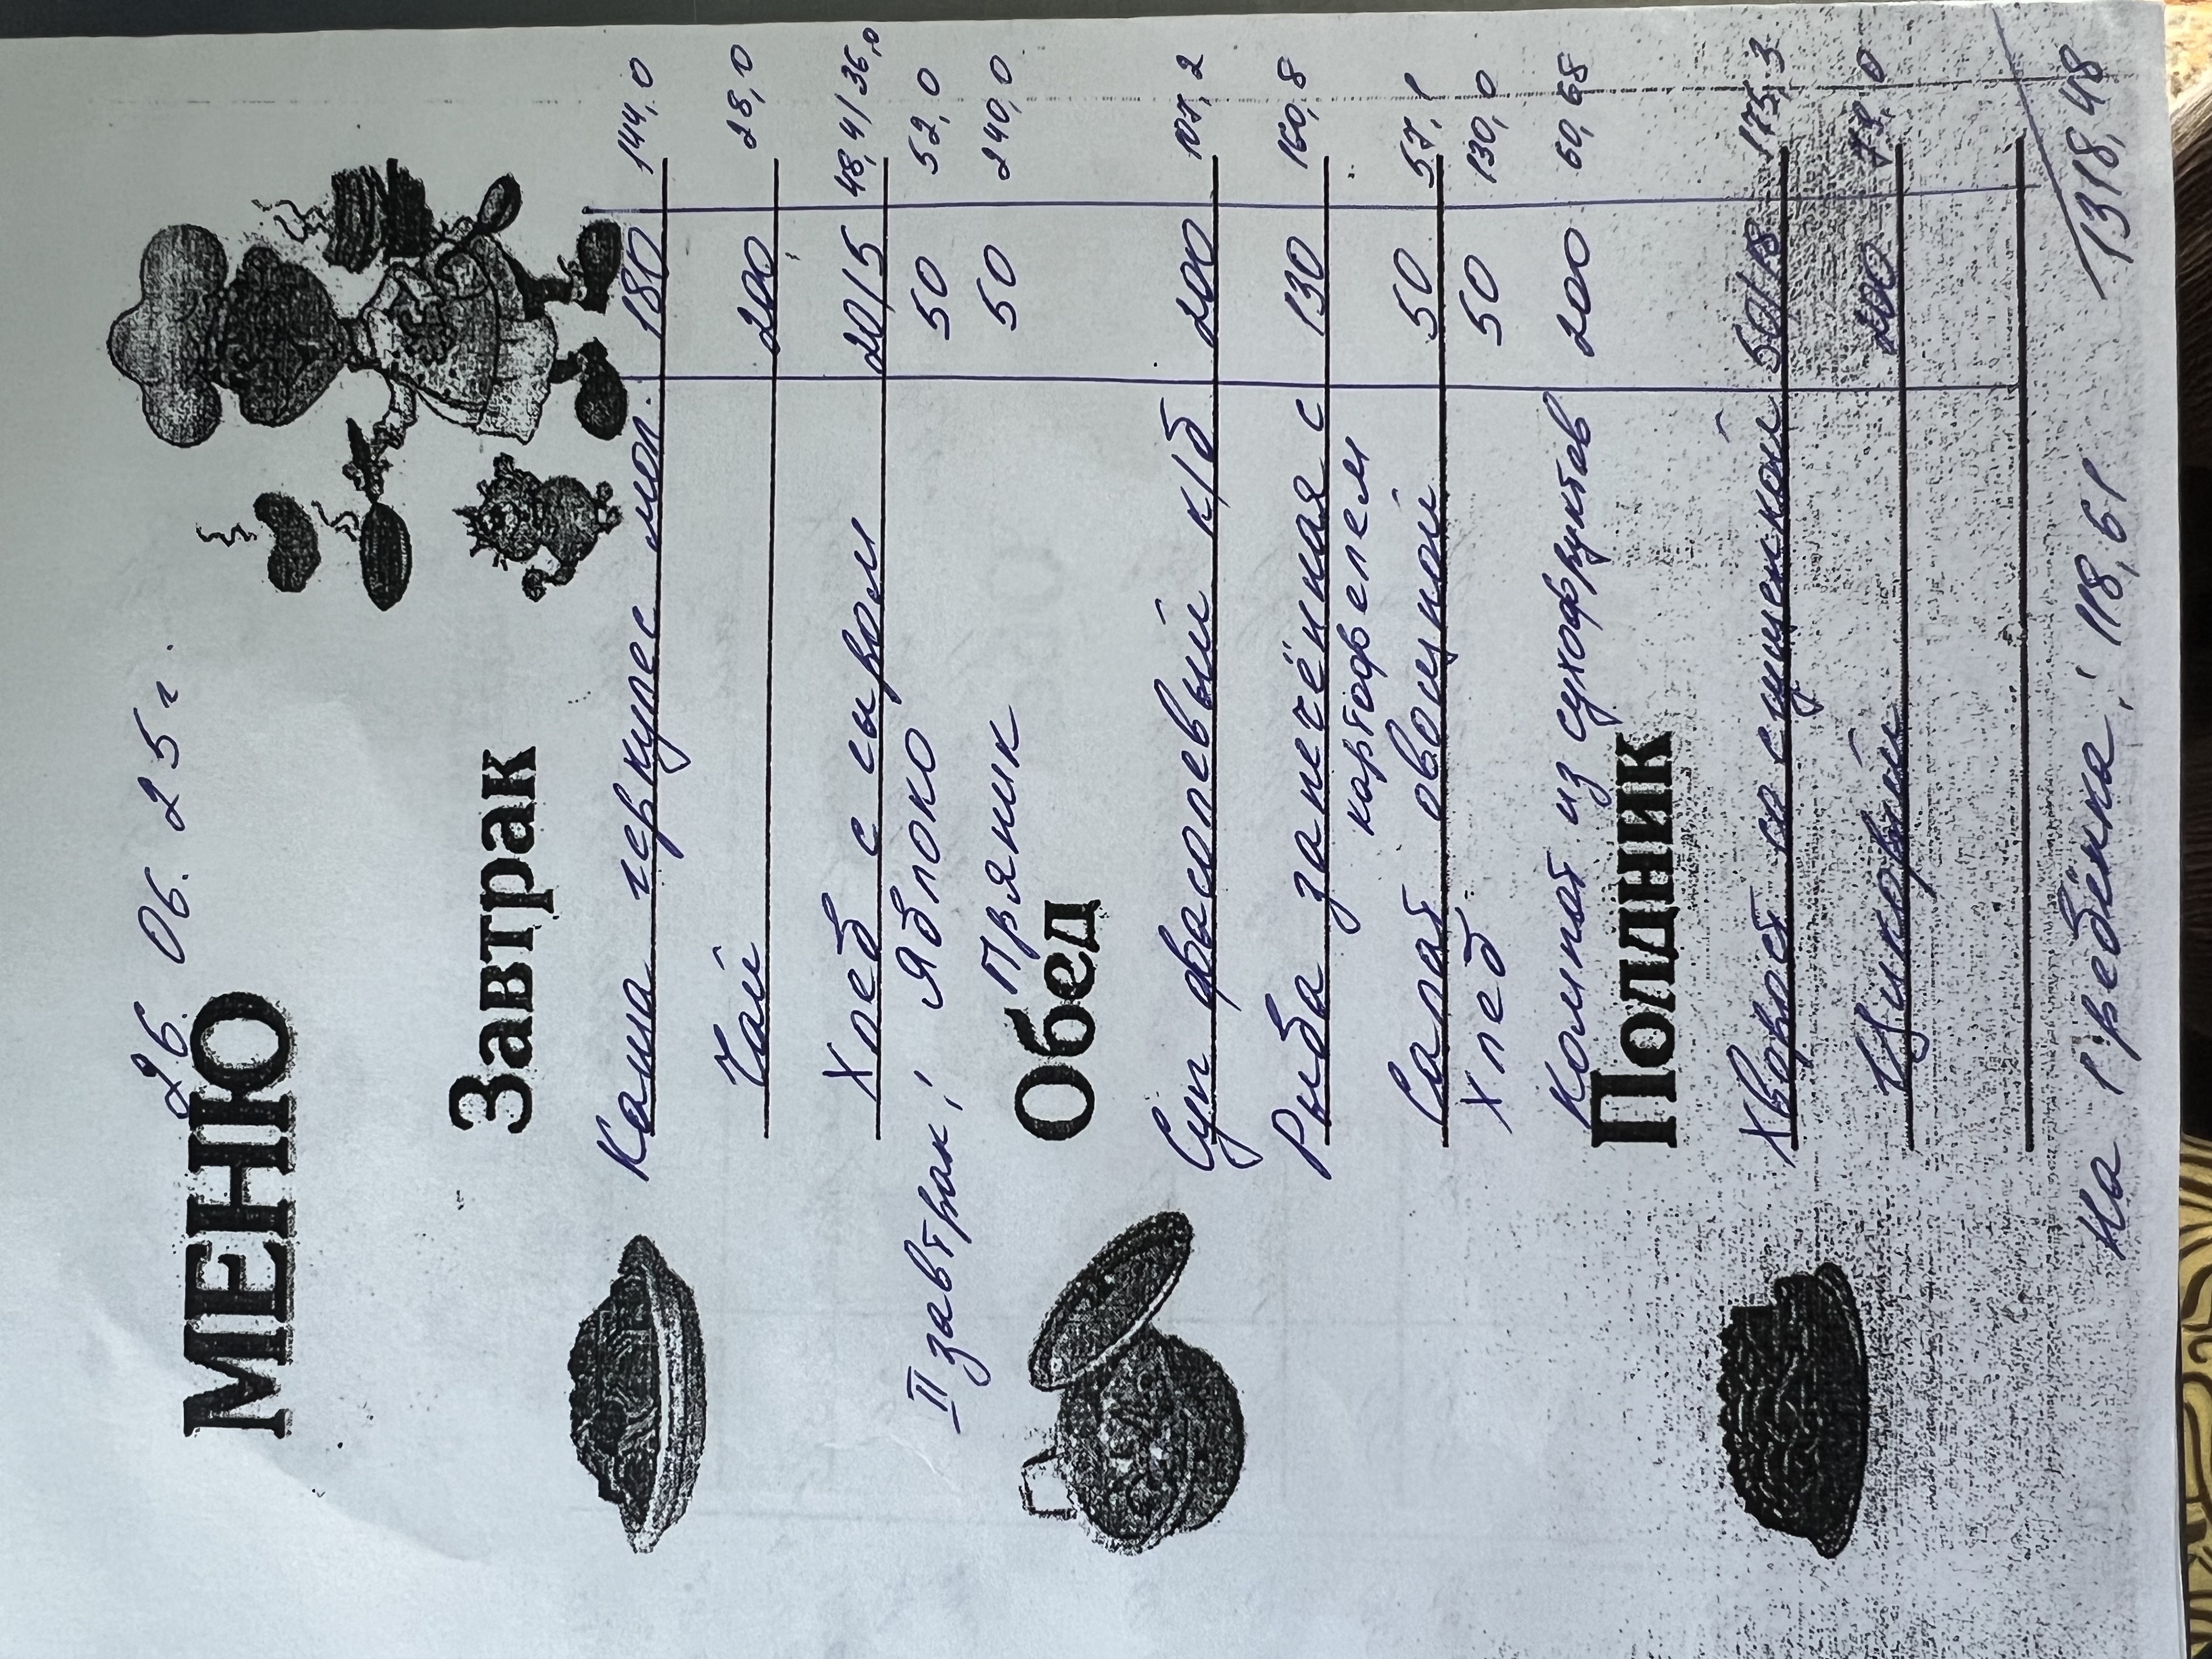 26. 06. 25 г.
МЕНЮ
Завтрак
Каша геркулес мол. 180 144,0
Чай 200 28,0
Хлеб с сыром 20/5 48,4/36,0
II завтрак: Яблоко 50 52,0
Пряник 50 240,0
Обед
Суп фасолевый к/б 200 107,2
Рыба запечённая с 130 160,8
картофелем
Салат овощной 50 57,1
Хлеб 50 130,0
Компот из сухофруктов 200 60,68
Полдник
Хворост со сгущенкой 50/18 175,3
Цикорий 200 79,0
1318,48
На 1 ребёнка: 118,61